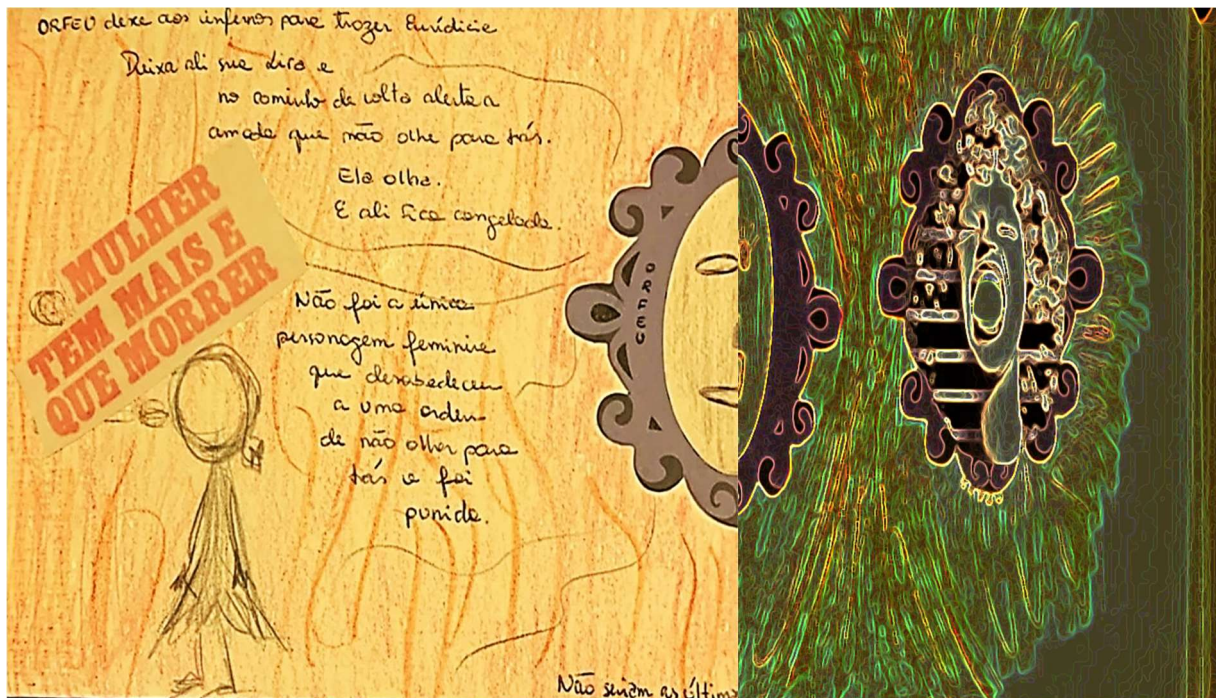 ORFEU dexe aos infernos para trazer Eurídicie
Deixa ali sua Lira e
no caminho de volta alerta a
amada que não olhe para trás.
Ela olha.
E ali fica congelada.
MULHER
TEM MAIS E
QUE MORRER
ORFEU
Não foi a única
personagem feminina
que desobedeceu
a uma ordem
de não olhar para
trás e foi
punida.
Não seriam as última